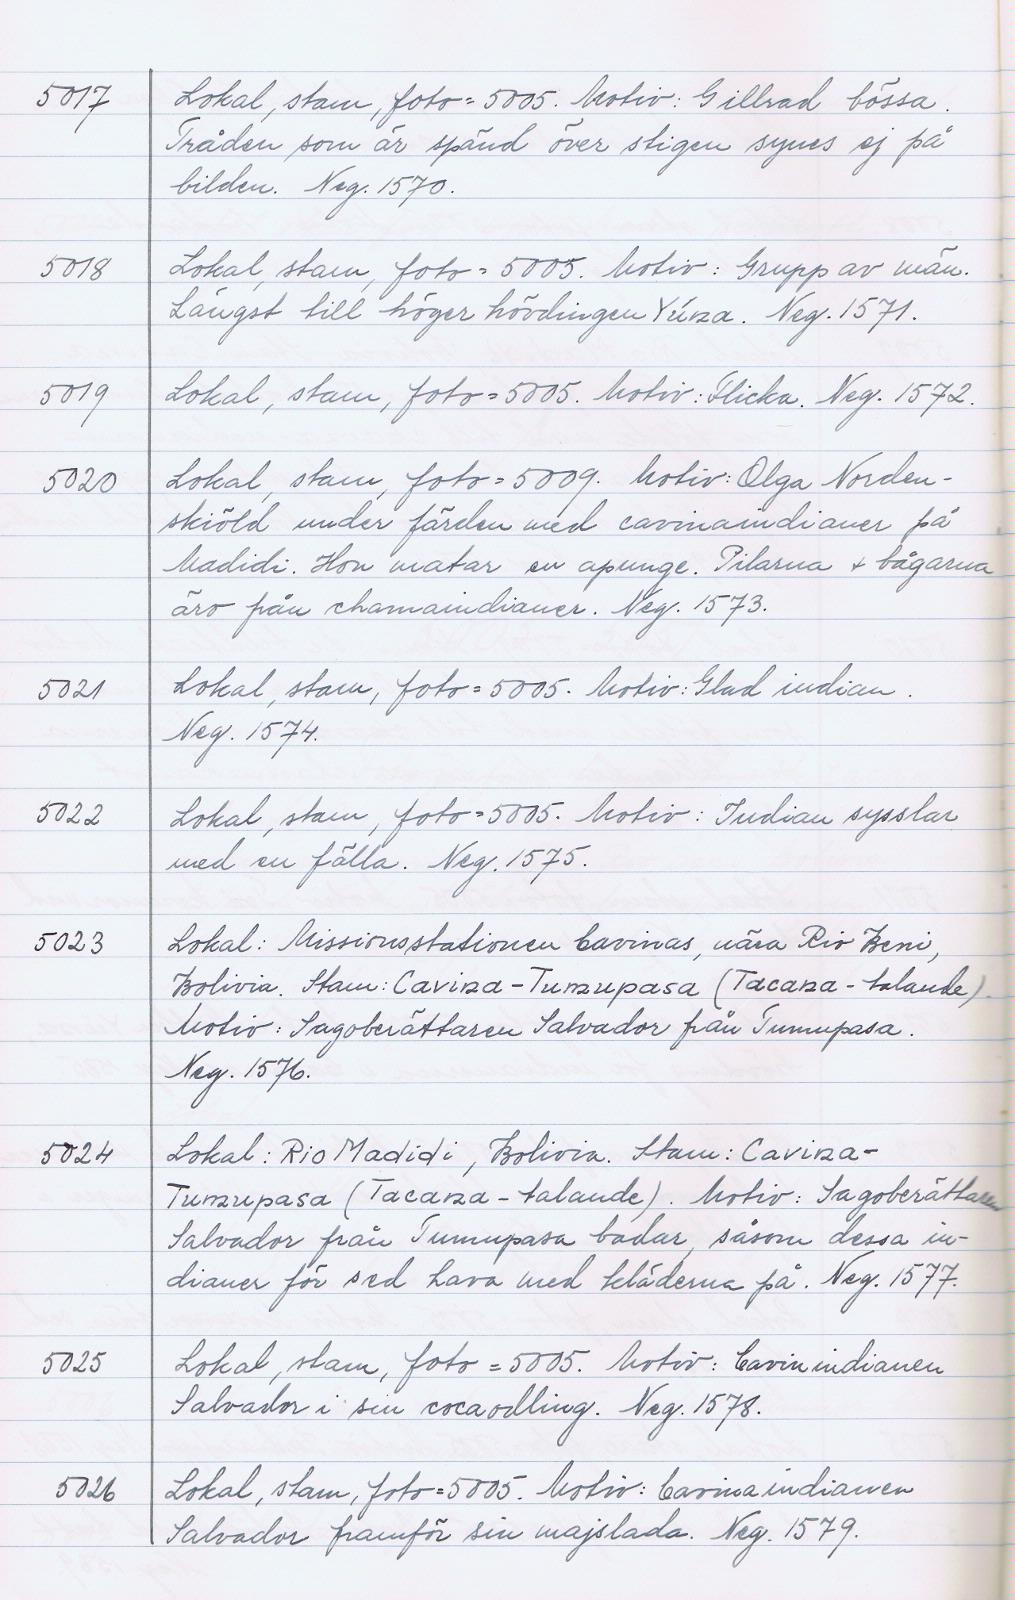 5017 Lokal, stam, foto = 5005. Motiv: Gillrad bössa.
Tråden som är spänd över stigen synes ej på
bilden. Neg. 1570.
5018 Lokal, stam, foto = 5005. Motiv: Grupp av män.
Längst till höger hövdingen Yúna. Neg. 1571.
5019 Lokal, stam, foto = 5005. Motiv: Flicka. Neg. 1572.
5020 Lokal, stam, foto = 5009. Motiv: Olga Norden-
skiöld under färden med cavinaindianer på
Madidi. Hon matar en apunge. Pilarna + bågarna
äro från chamaindianer. Neg. 1573.
5021 Lokal, stam, foto = 5005. Motiv: Glad indian.
Neg. 1574.
5022 Lokal, stam, foto = 5005. Motiv: Indian sysslar
med en fälla. Neg. 1575.
5023 Lokal: Missionsstationen Cavinas, nära Rio Beni,
Bolivia. Stam: Cavina-Tumupasa (Tacana-talande).
Motiv: Sagoberättaren Salvador från Tumupasa.
Neg. 1576.
5024 Lokal: Rio Madidi, Bolivia. Stam: Cavina-
Tumupasa (Tacana-talande). Motiv: Sagoberättaren
Salvador från Tumupasa badar, såsom dessa in-
dianer för sed hava med kläderna på. Neg. 1577.
5025 Lokal, stam, foto = 5005. Motiv: Cavinindianen
Salvador i sin cocaodling. Neg. 1578.
5026 Lokal, stam, foto = 5005. Motiv: Cavinaindianen
Salvador framför sin majslada. Neg. 1579.